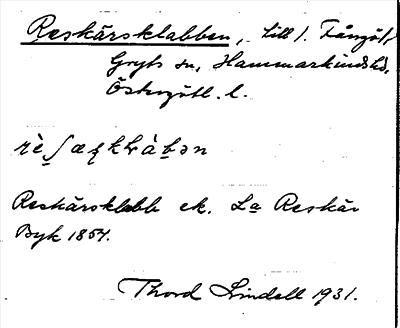 Reskärsklabben, till 1. Fångö,
Gryts sn, Hammarkinds hd,
Östergötl. l.
Reskärsklabb ek. La Reskär
Byk 1857.
Thord Lindell 1931.